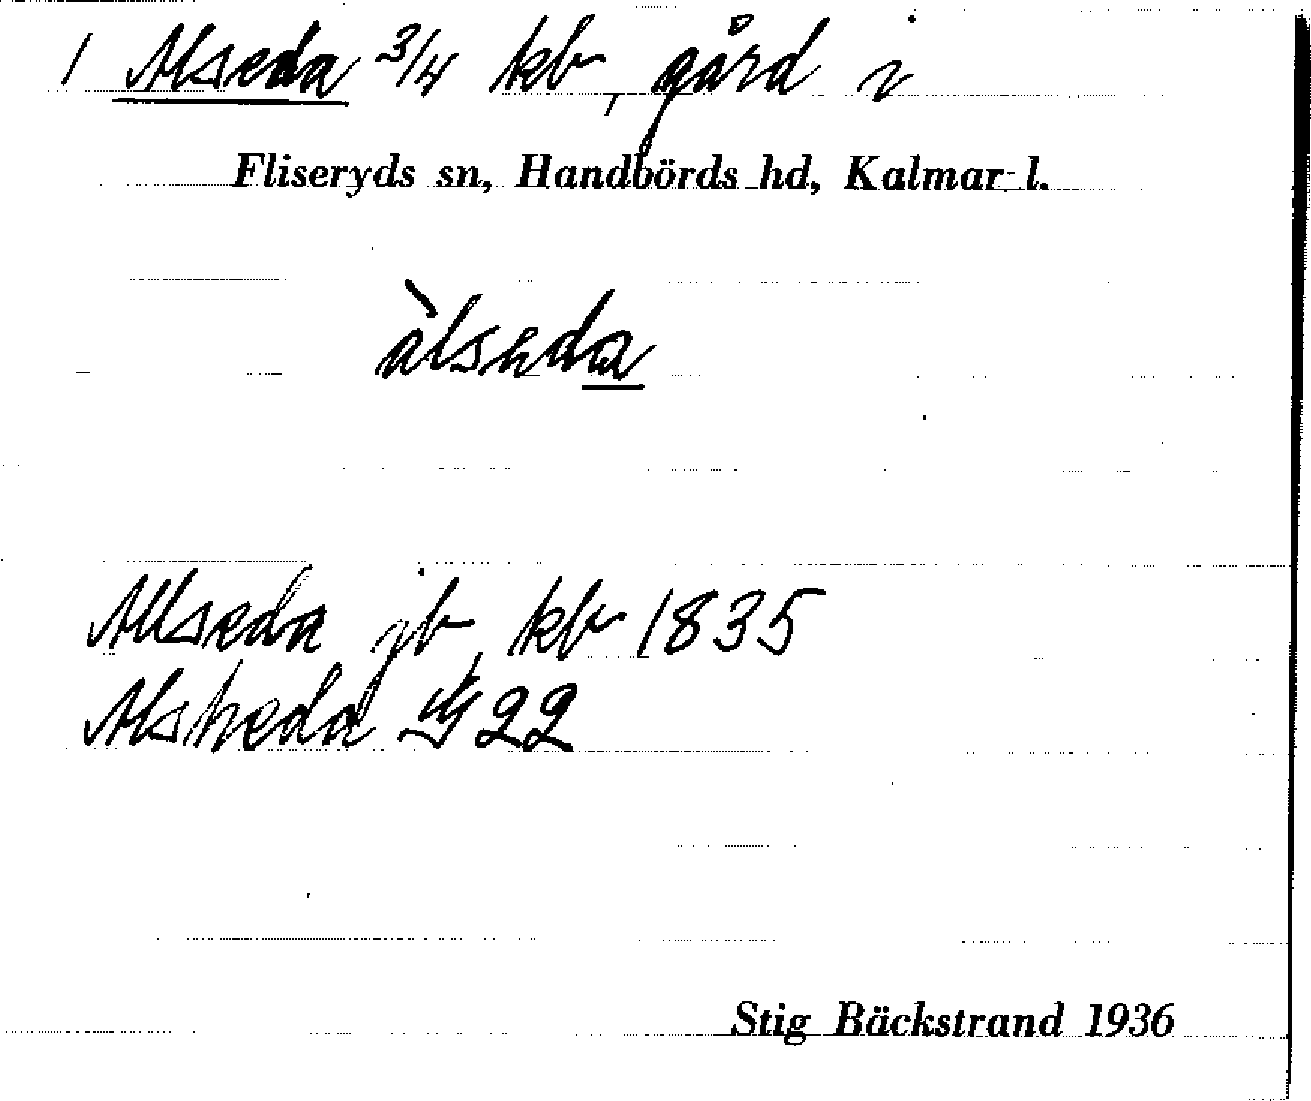 1 Alseda 3/4 kb, gård i
Fliseryds sn, Handbörds hd, Kalmar l.
àlseda
Allseda jb, kb 1835
Alsheda 22
Stig Bäckstrand 1936